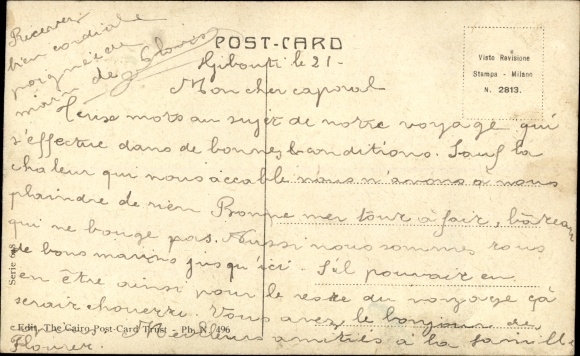 Recevez
bien cordiale
poignée de
main de
POST-CARD
Visto Revisione
Stampa - Milano
N. 2813.
Djibouti le 21 -
Mon cher caporal
Deux mots au sujet de notre voyage qui
s'effectue dans de bonnes conditions. Sauf la
chaleur qui nous accable nous n'avons à nous
plaindre de rien Bonne mer tout à fait, bâteau
qui ne bouge pas. Aussi nous sommes tous
de bons marins jusqu'ici. S'il pouvait en
en être ainsi pour le reste du voyage çà
serait chouette. Vous avez le bonjour de
Meilleurs amitiés à la famille
Serie 618
Edit. The Cairo Post-Card Trust - Ph. N. 496